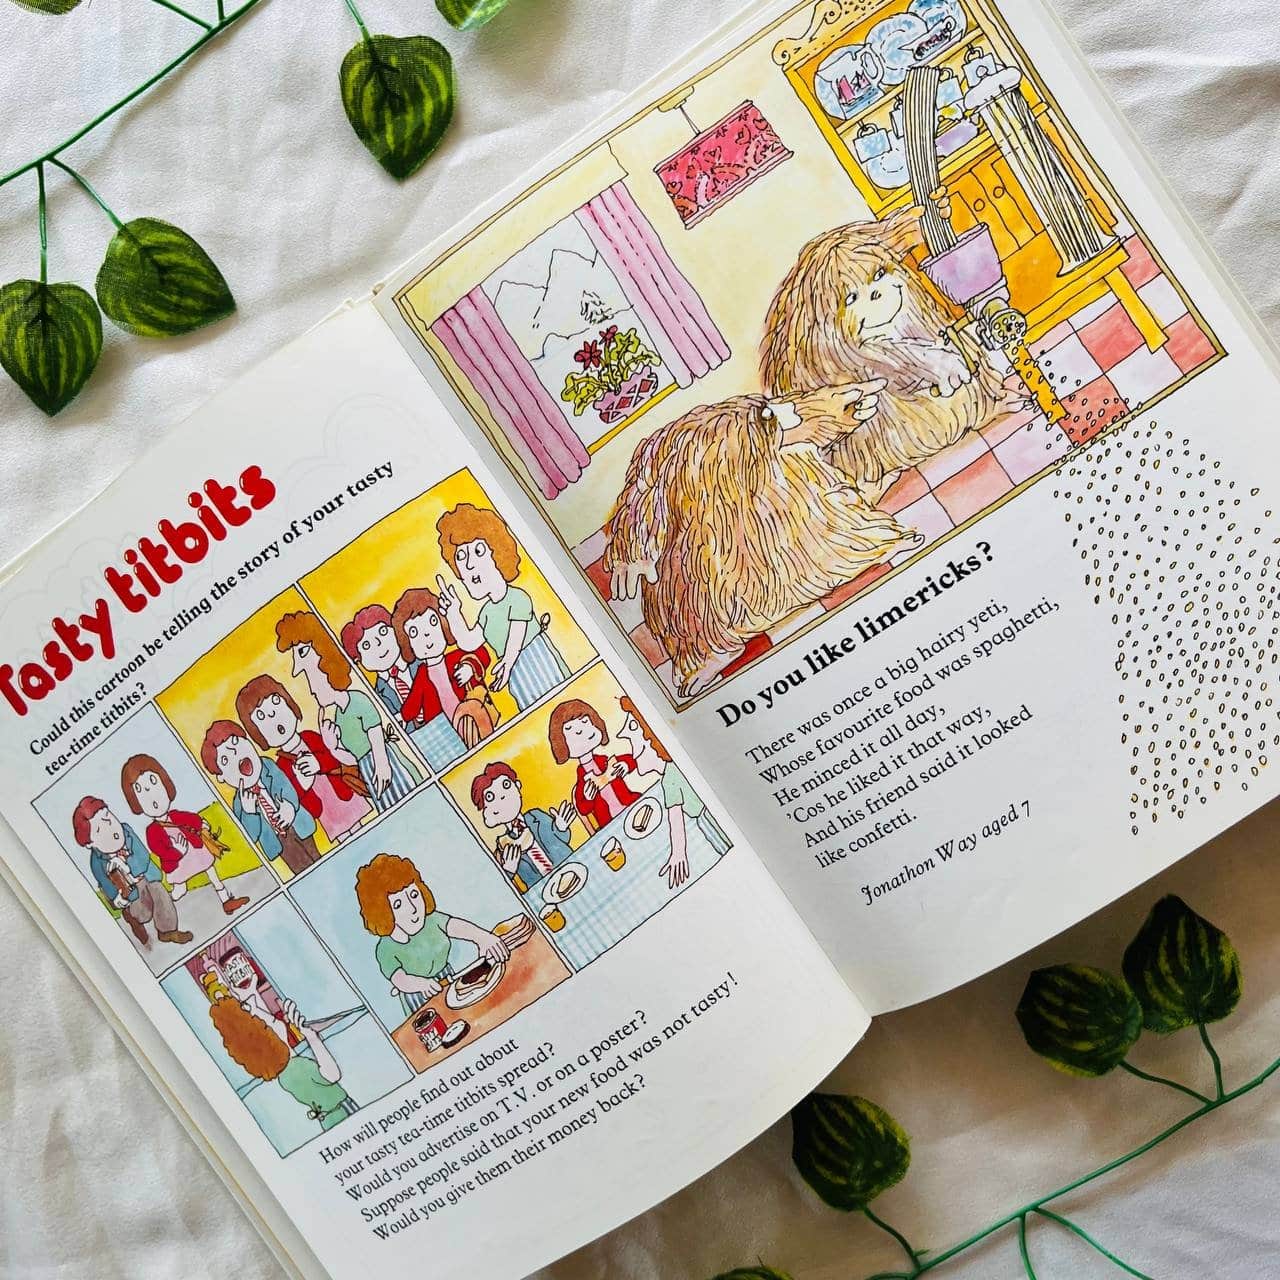 Tasty titbits
Could this cartoon be telling the story of your tasty
tea-time titbits?
TASTY
How will people find out about
your tasty tea-time titbits spread?
Would you advertise on T.V. or on a poster?
Suppose people said that your new food was not tasty!
Would you give them their money back?
Do you like limericks?
There was once a big hairy yeti,
Whose favourite food was spaghetti,
He minced it all day,
'Cos he liked it that way,
And his friend said it looked
like confetti.
Jonathon Way aged 7